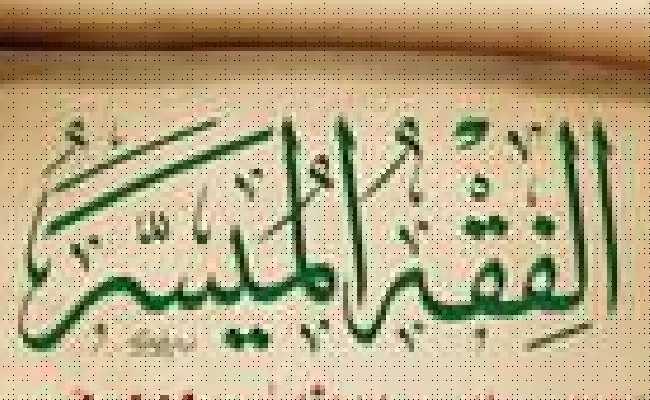 الفقه الميسر